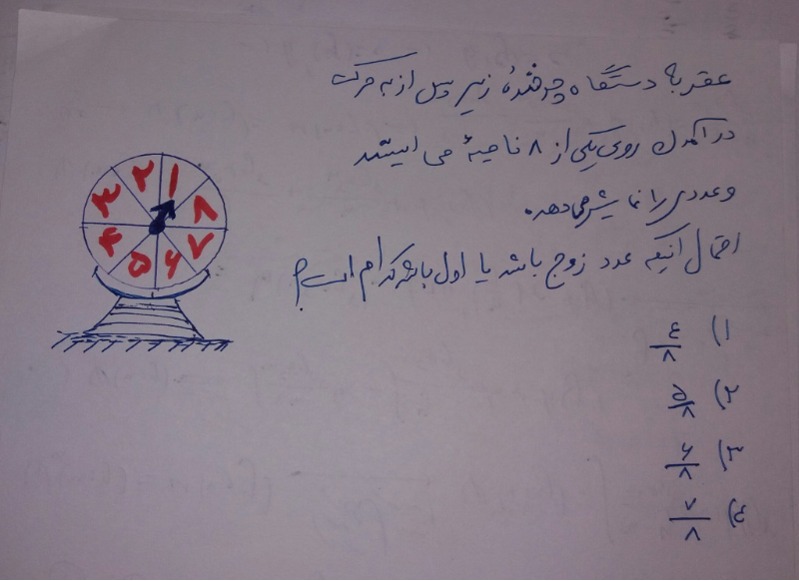 عقربهٔ دستگاه چرخندهٔ زیر پس از به حرکت
در آمدن روی یکی از ۸ ناحیهٔ می ایستد
و عددی را نمایش می‌دهد.
احتمال آنکه عدد زوج باشد یا اول باشد کدام است؟
۱) ٤/۸
۲) ۵/۸
۳) ۶/۸
٤) ۷/۸
۱
۲
۳
۴
۵
۶
۷
۸